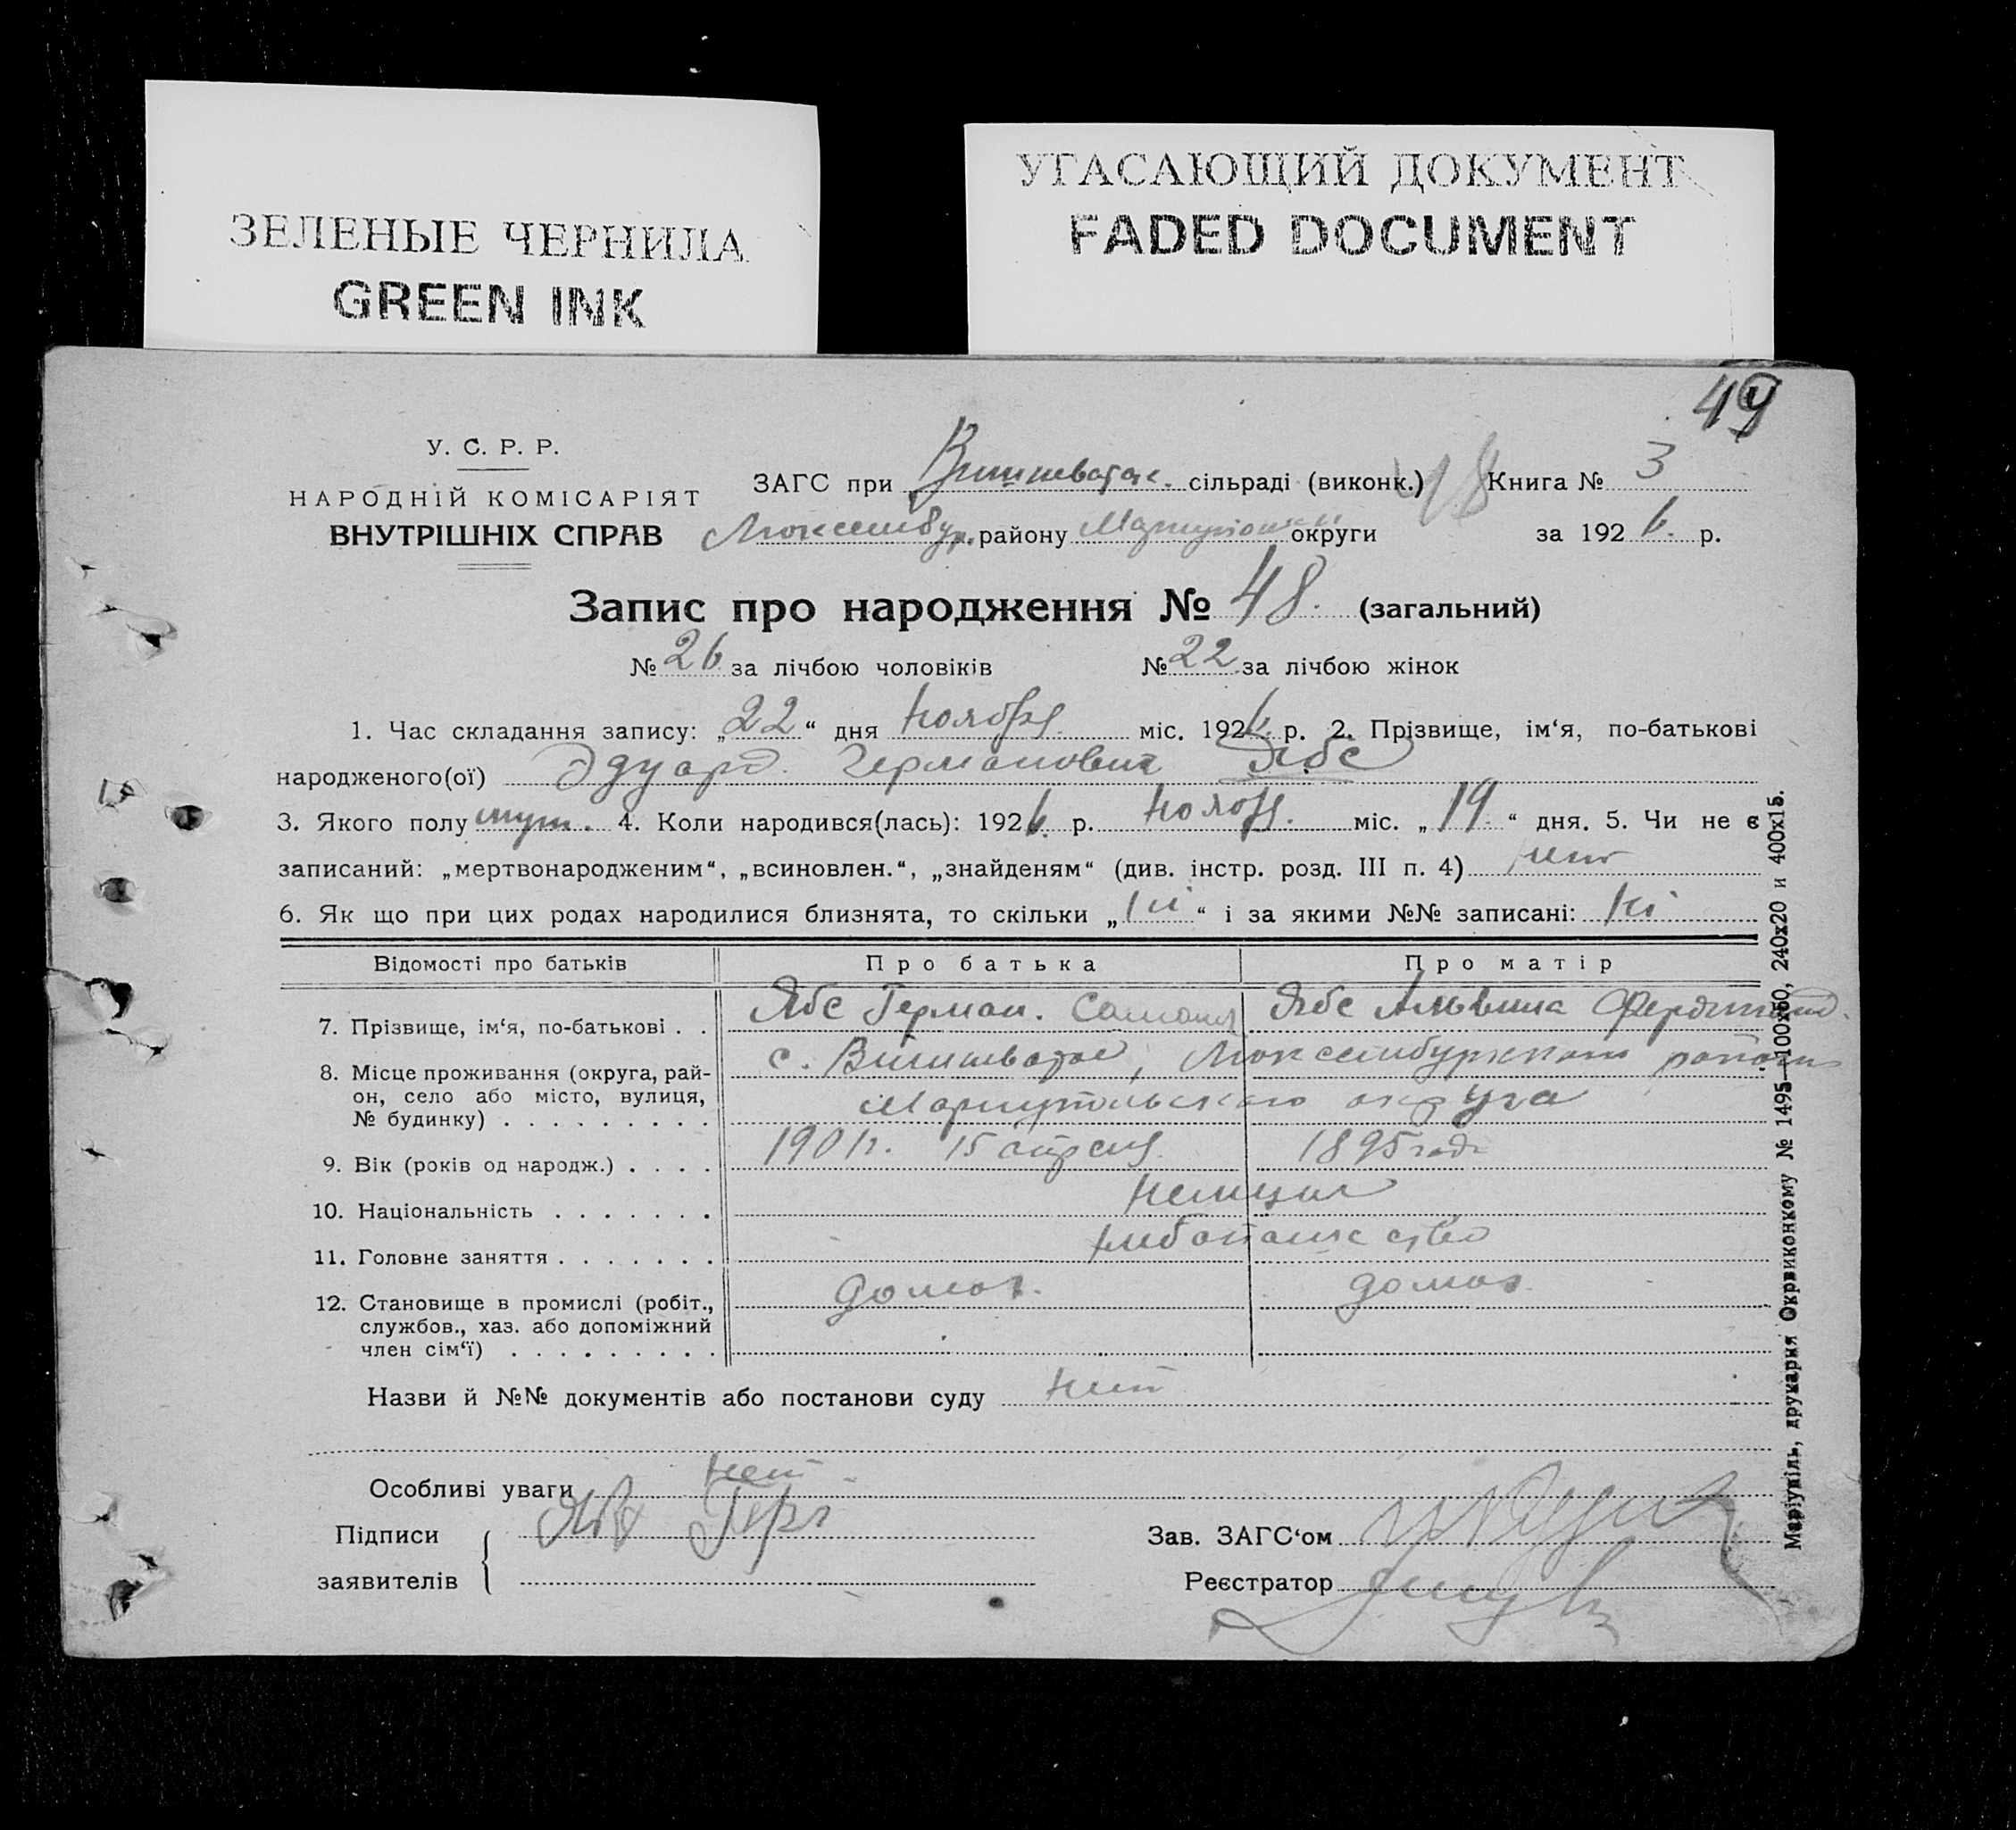 ЗЕЛЕНЫЕ ЧЕРНИЛА
GREEN INK
УГАСАЮЩИЙ ДОКУМЕНТ
FADED DOCUMENT
49
У. С. Р. Р.
НАРОДНІЙ КОМІСАРІЯТ
ВНУТРІШНІХ СПРАВ
ЗАГС при Вишневатск. сільраді (виконк.) 48 Книга № 3
Люксембур. району Мариупольск округи за 1926 р.
Запис про народження № 48. (загальний)
№ 26 за лічбою чоловіків № 22 за лічбою жінок
1. Час складання запису: „22“ дня ноября міс. 1926 р. 2. Прізвище, ім‘я, по-батькові
народженого(ої) Эдуард Германович Ябс
3. Якого полу муж. 4. Коли народився(лась): 1926 р. ноябр. міс. „19“ дня. 5. Чи не є
записаний: „мертвонародженим“, „всиновлен.“, „знайденям“ (див. інстр. розд. III п. 4) нет
6. Як що при цих родах народилися близнята, то скільки „ні“ і за якими №№ записані: ні
Відомості про батьків Про батька Про матір
7. Прізвище, ім‘я, по-батькові . . Ябс Герман. Ябс Альвина Фердинанд.
8. Місце проживання (округа, рай-
он, село або місто, вулиця,
№ будинку) . . . . . . . . .
с. Вишневатое, Люксембургского района
Мариупольского округа
9. Вік (років од народж.) . . . . 1901г. 15 апреля 1895 года
10. Національність . . . . . . . немцы
11. Головне заняття . . . . . . . хлебопашество
12. Становище в промислі (робіт.,
службов., хаз. або допоміжний
член сім‘ї) . . . . . . . . .
домохоз. домохоз.
Назви й №№ документів або постанови суду нет
Особливі уваги нет
Підписи
заявителів
Ябс Гер
Зав. ЗАГС‘ом
Реєстратор
Маріупіль, друкарня Окрвиконкому № 1495—100х60, 240х20 и 400х15.